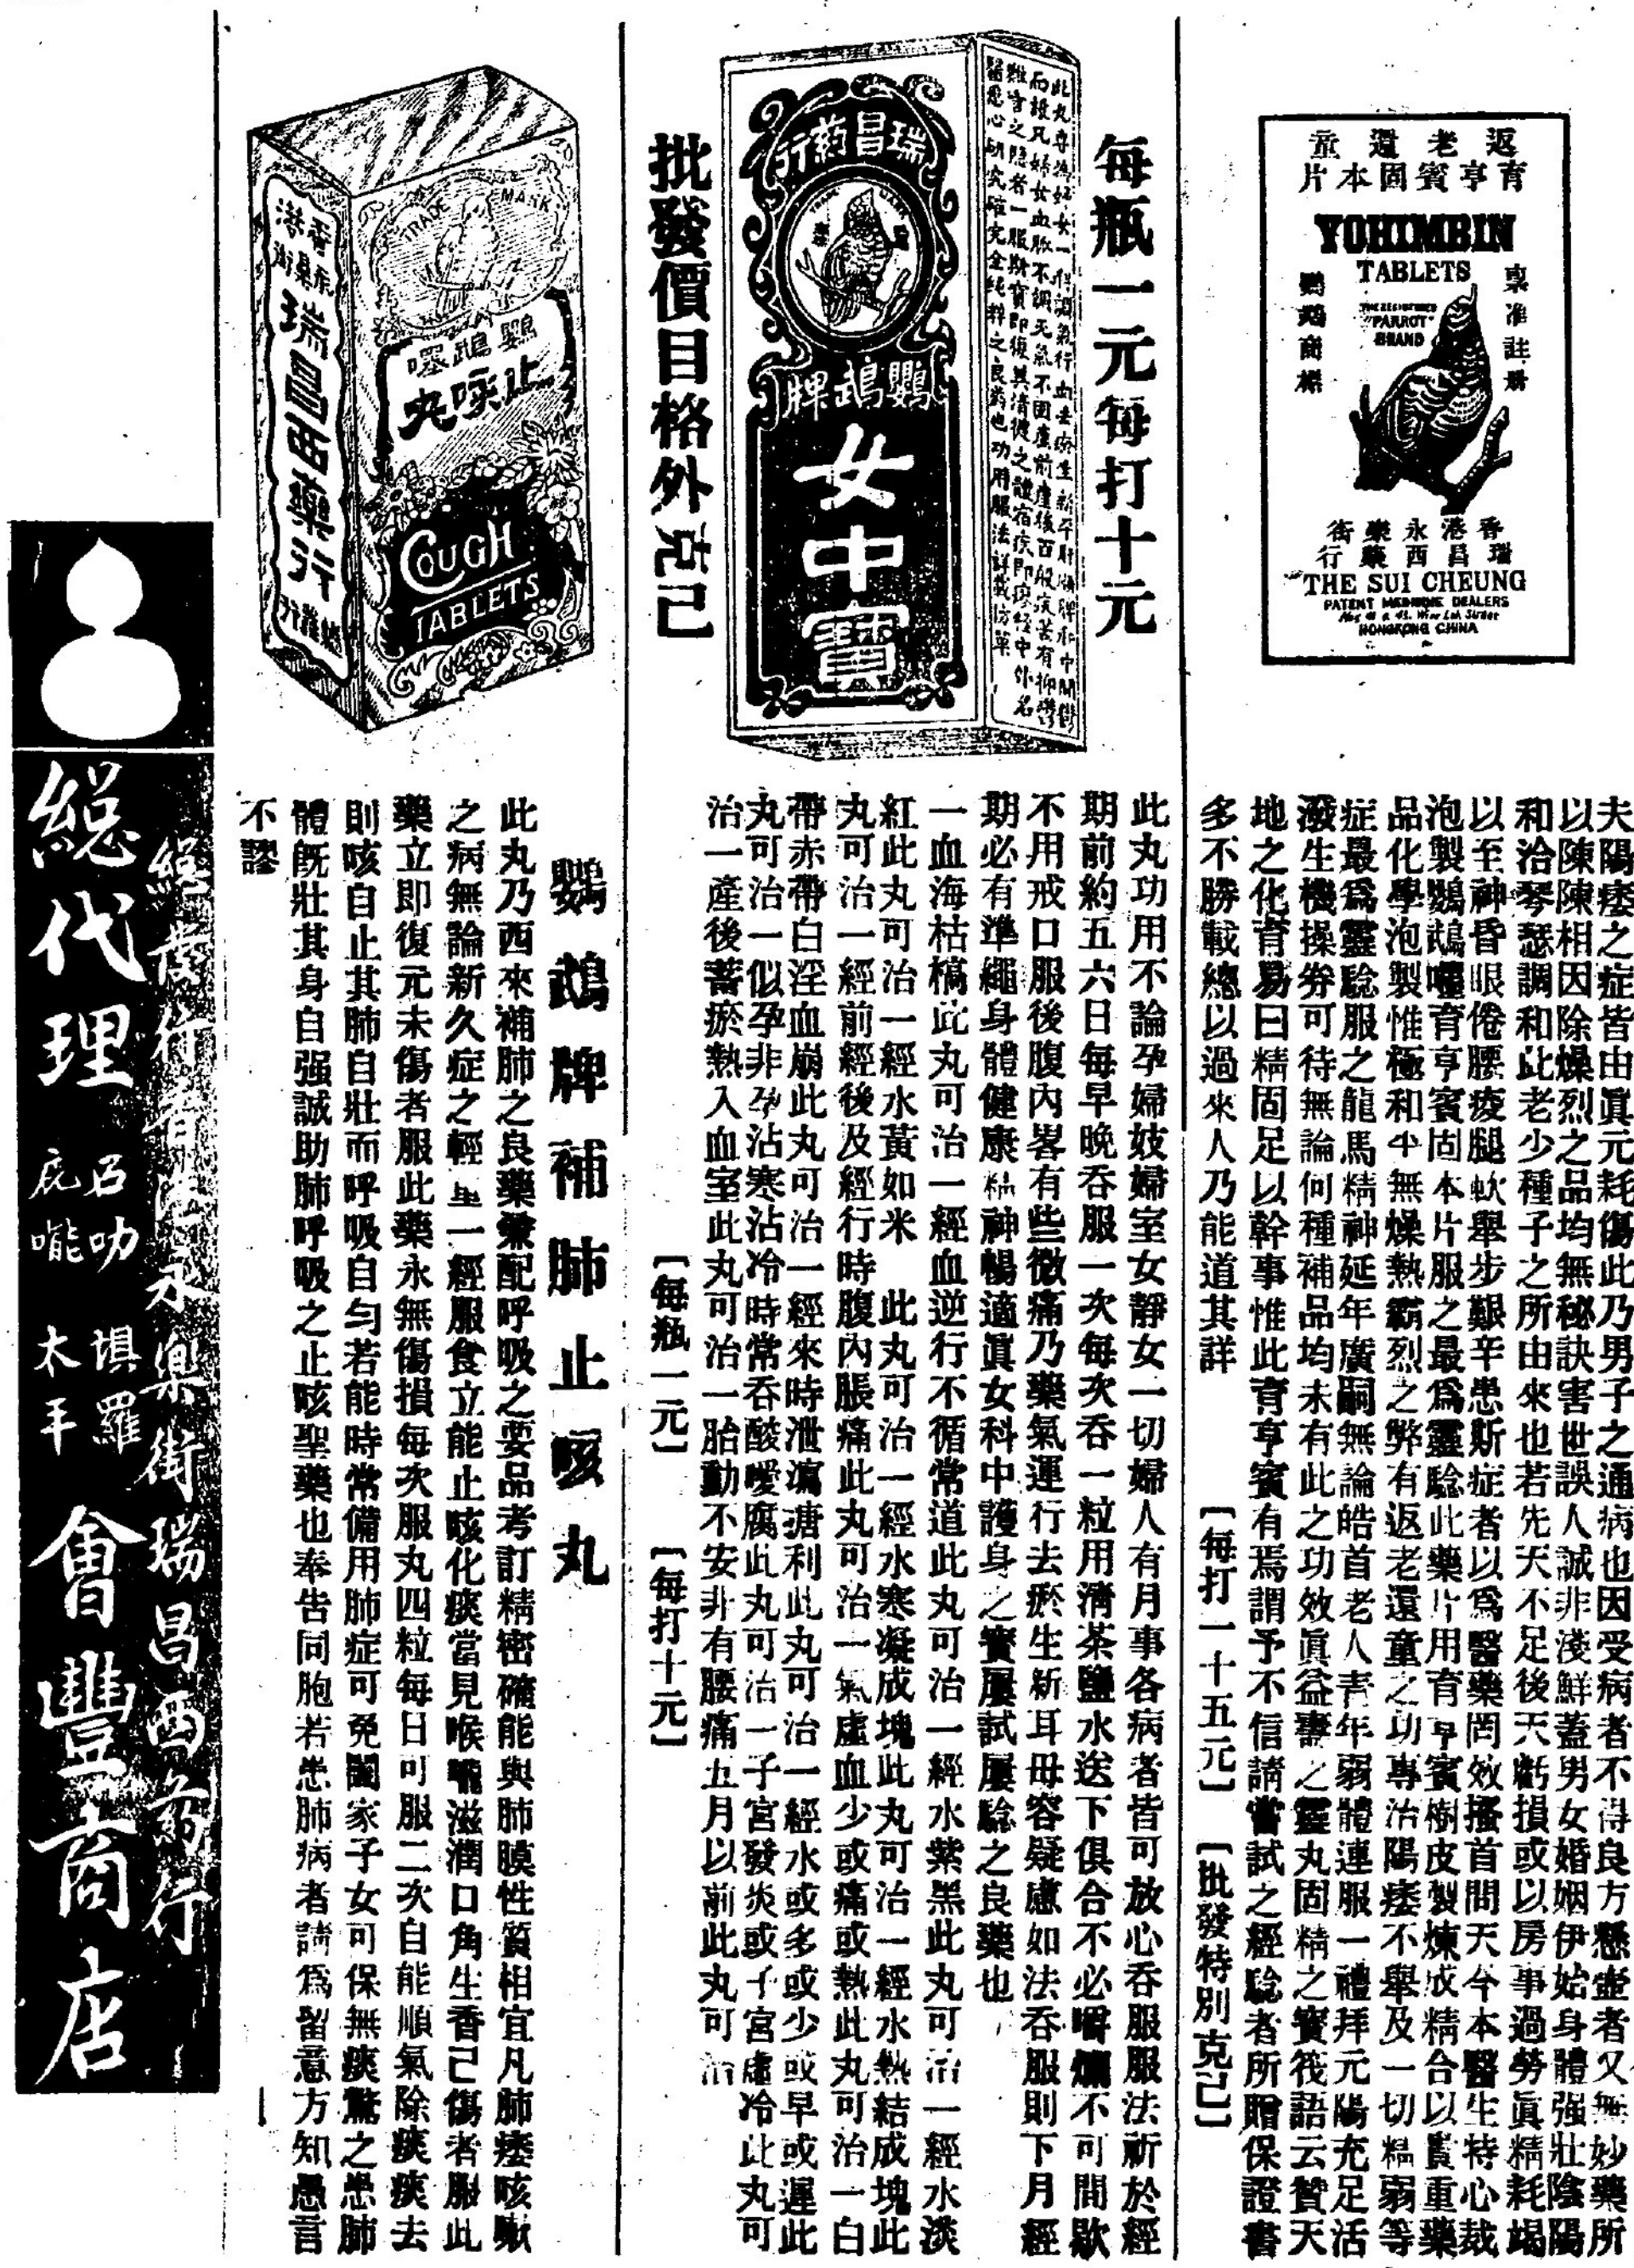 返老還童
育亨賓固本片
YOHIMBIN
TABLETS
稟准註册
鸚鵡商標
THE REGISTERED
"PARROT"
BRAND
香港永樂街
瑞昌西藥行
THE SUI CHEUNG
PATENT MEDICINE DEALERS
HONGKONG CHINA
夫陽痿之症皆由眞元耗傷此乃男子之通病也因受病者不得良方懸壺者又無妙藥所
以陳陳相因除燥烈之品均無秘訣害世誤人誠非淺鮮蓋男女婚姻伊始身體强壯陰陽
和洽琴瑟調和此老少種子之所由來也若先天不足後天虧損或以房事過勞眞精耗竭
以至神昏眼倦腰痠腿軟舉步艱辛患斯症者以爲醫藥罔效搔首問天今本醫生特心裁
泡製鸚鵡嘜育亨賓固本片服之最爲靈驗此藥片用育亨賓樹皮製煉成精合以貴重藥
品化學泡製惟極和平無燥熱霸烈之弊有返老還童之功專治陽痿不舉及一切精弱等
症最爲靈驗服之龍馬精神延年廣嗣無論皓首老人青年弱體連服一禮拜元陽充足活
潑生機操券可待無論何種補品均未有此之功效眞益壽之靈丸固精之寳筏語云贊天
地之化育易曰精固足以幹事惟此育亨賓有焉謂予不信請嘗試之經驗者所贈保證書
多不勝載總以過來人乃能道其詳
【每打一十五元】
【批發特別克己】
每瓶一元每打十元
瑞昌葯行
TRADE MARK
鸚鵡牌
女中寳
批發價目格外克己
此丸功用不論孕婦妓婦室女靜女一切婦人有月事各病者皆可放心吞服服法祈於經
期前約五六日每早晚吞服一次每次吞一粒用清茶鹽水送下俱合不必嚼爛不可間歇
不用戒口服後腹內畧有些微痛乃藥氣運行去瘀生新耳毋容疑慮如法吞服則下月經
期必有準繩身體健康精神暢適眞女科中護身之寳屢試屢驗之良藥也
一血海枯槁此丸可治一經血逆行不循常道此丸可治一經水紫黑此丸可治一經水淡
紅此丸可治一經水黃如米 此丸可治一經水寒凝成塊此丸可治一經水熱結成塊此
丸可治一經前經後及經行時腹內脹痛此丸可治一氣虛血少或痛或熱此丸可治一白
帶赤帶白淫血崩此丸可治一經來時泄瀉溏利此丸可治一經水或多或少或早或遲此
丸可治一似孕非孕沾寒沾冷時常吞酸噯腐此丸可治一子宮發炎或子宮虛冷此丸可
治一產後蓄瘀熱入血室此丸可治一胎動不安非有腰痛五月以前此丸可治
【每瓶一元】
【每打十元】
TRADE MARK
鸚鵡嘜
止咳丸
COUGH
TABLETS
香港
瑞昌西藥行
鸚鵡牌補肺止咳丸
此丸乃西來補肺之良藥兼配呼吸之要品考訂精密確能與肺膜性質相宜凡肺痿咳嗽
之病無論新久症之輕重一經服食立能止咳化痰當見喉嚨滋潤口角生香己傷者服此
藥立即復元未傷者服此藥永無傷損每次服丸四粒每日可服二次自能順氣除痰痰去
則咳自止其肺自壯而呼吸自勻若能時常備用肺症可免闔家子女可保無痰驚之患肺
體旣壯其身自强誠助肺呼吸之止咳聖藥也奉告同胞若患肺病者請爲留意方知愚言
不謬
永樂街瑞昌西葯行
總代理
呂叻
庇嚨
埧羅
太平
會豐商店